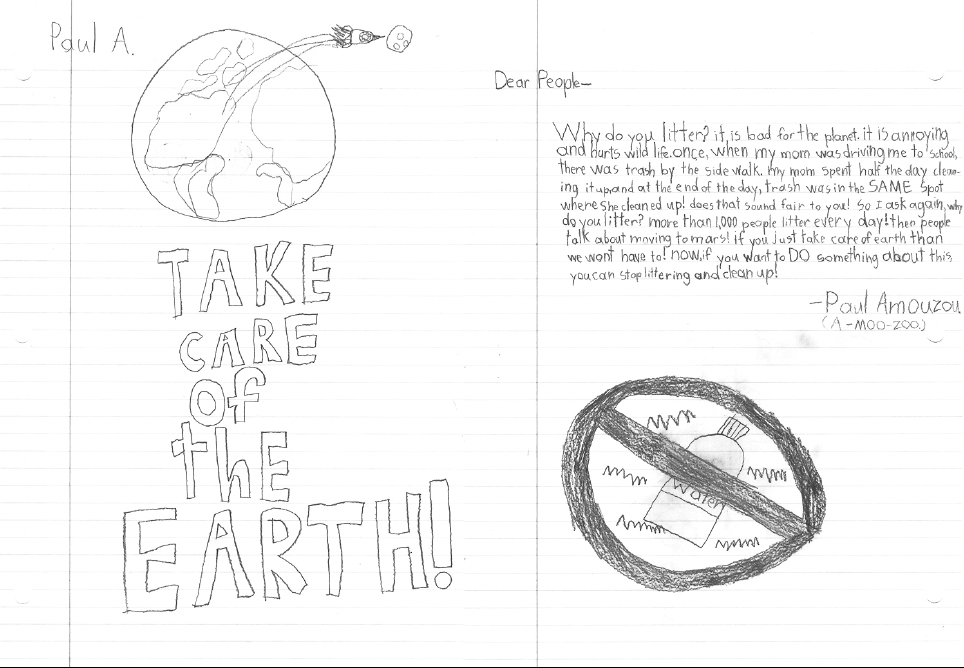 Paul A.
TAKE
CARE
of
thE
EARTH!
Dear People-
Why do you litter? it is bad for the planet. it is annoying
and hurts wild life. once, when my mom was driving me to school,
there was trash by the side walk. my mom spent half the day clean-
ing it up, and at the end of the day, trash was in the SAME spot
where she cleaned up! does that sound fair to you! so I ask again, why
do you litter? more than 1,000 people litter every day! then people
talk about moving to mars! if you just take care of earth than
we wont have to! now, if you want to DO something about this
you can stop littering and clean up!
-Paul Amouzou
(A-MOO-ZOO)
Water